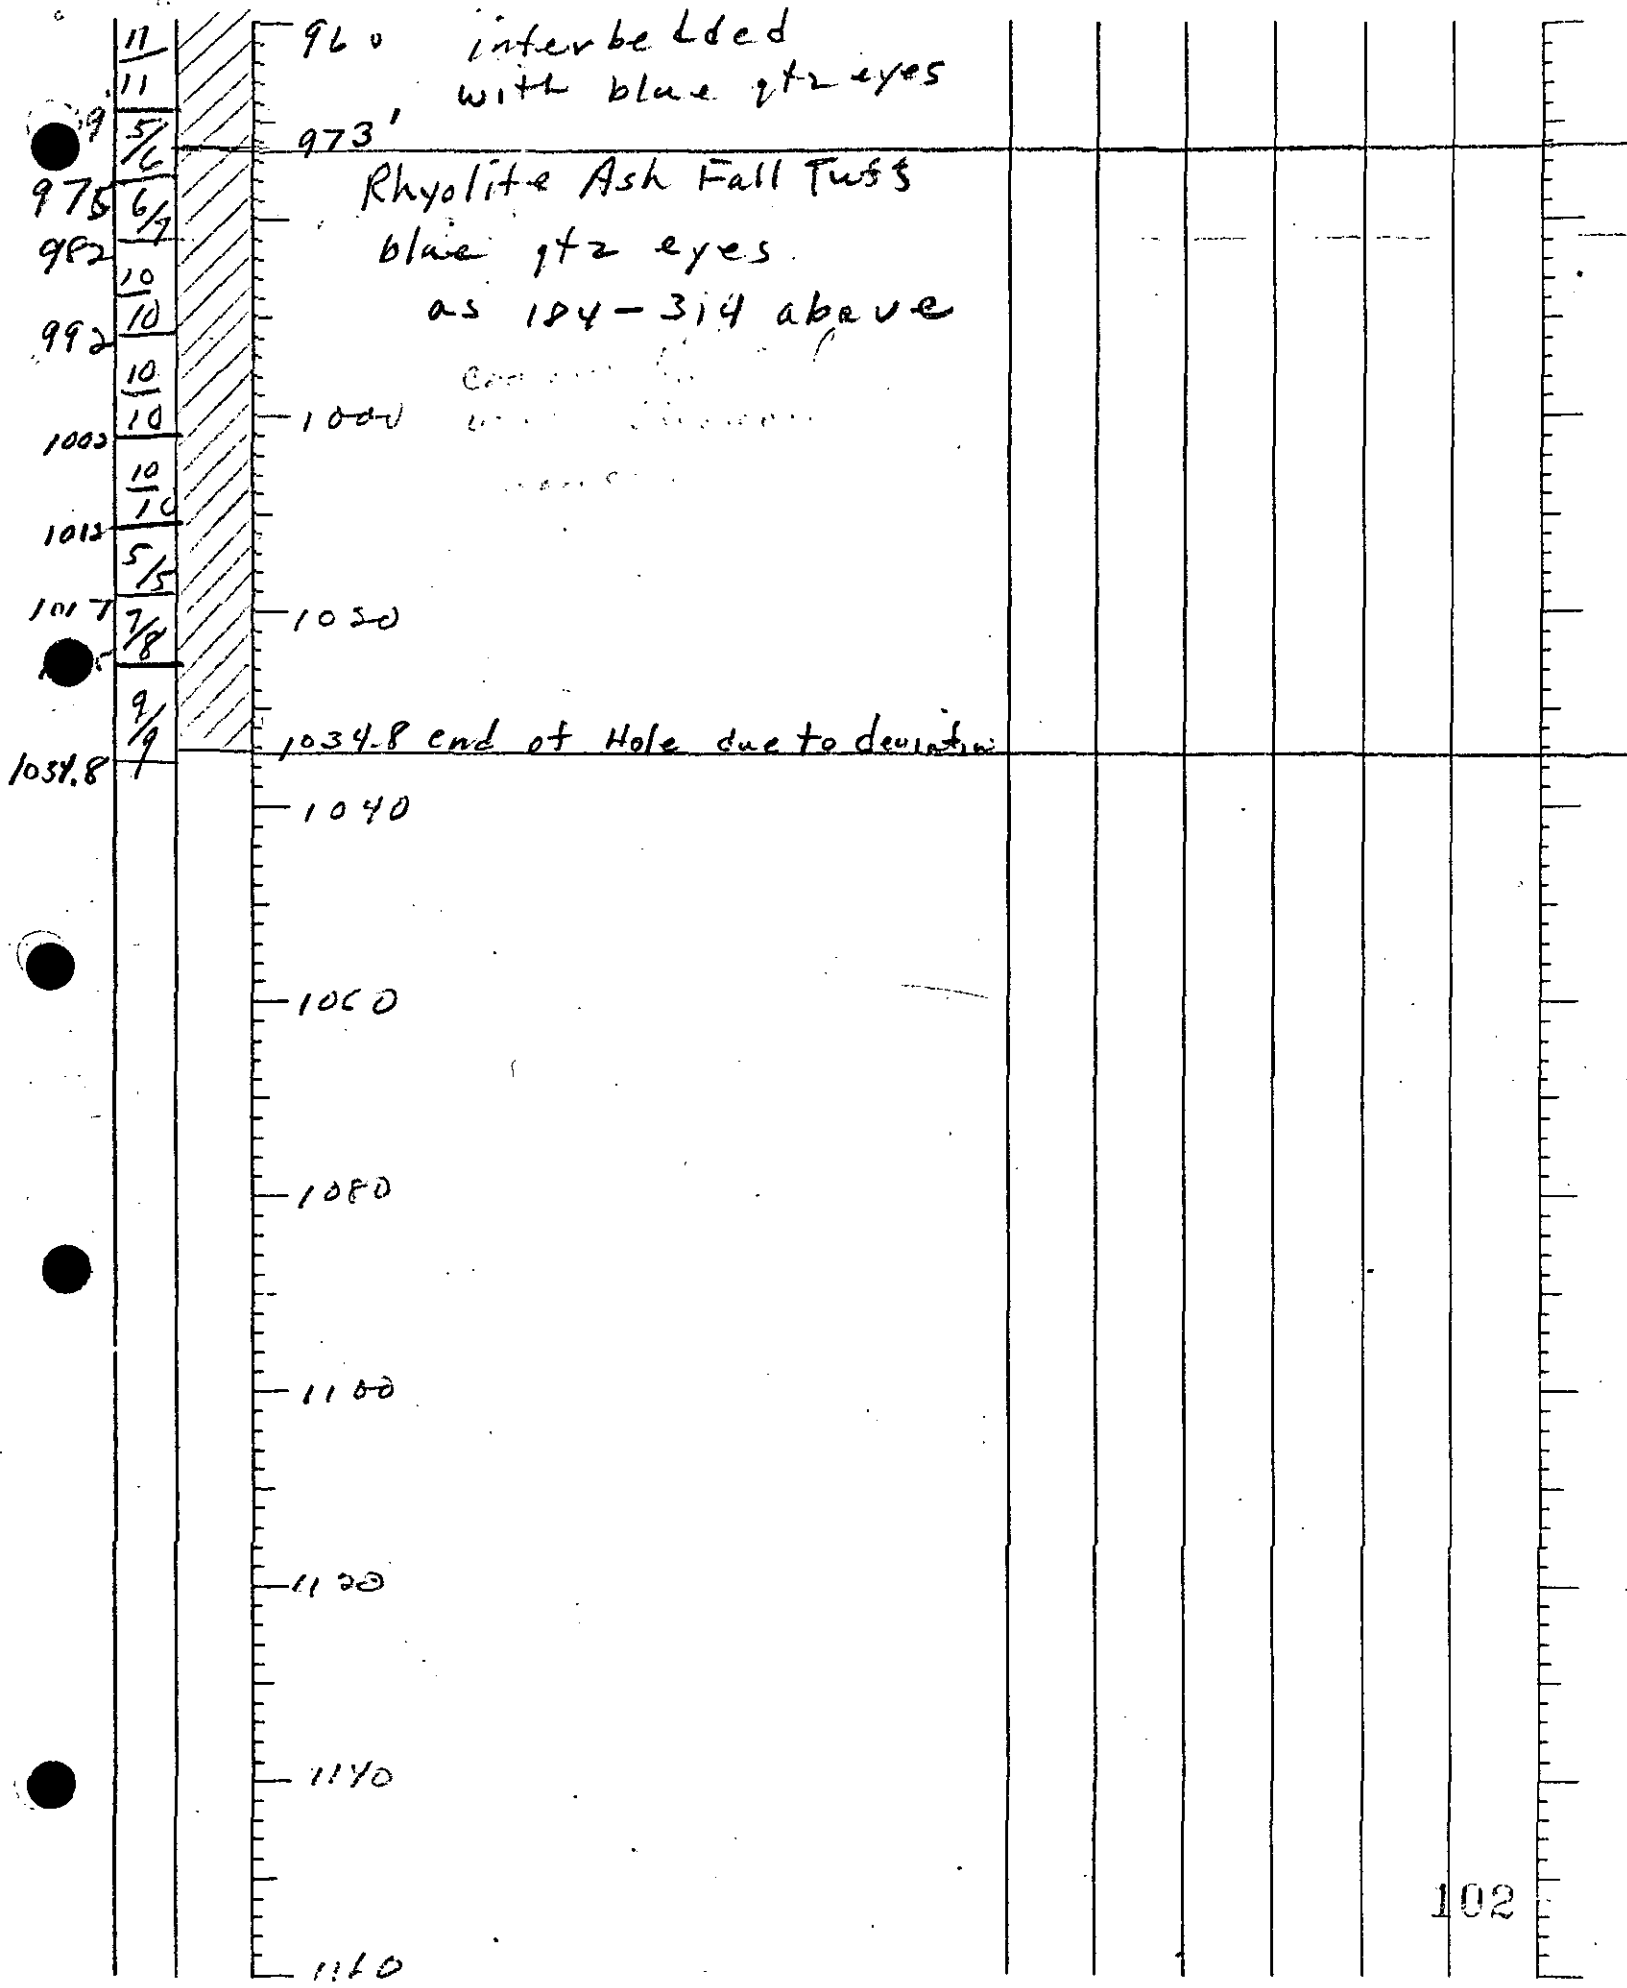 11
11
960 interbedded
with blue qtz eyes
9
5/6
973'
975
6/7
Rhyolite Ash Fall Tuff
982
blue qtz eyes
10
10
as 184-314 above
992
10
10
1000
1002
10
10
1012
5/5
1017
1020
7/8
9/9
1034.8 end of Hole due to deviation
1034.8
1040
1060
1080
1100
1120
1140
102
1160